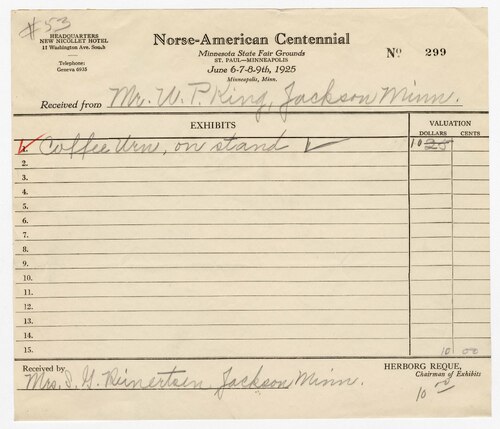 #53
HEADQUARTERS
NEW NICOLLET HOTEL
11 Washington Ave. South
Telephone:
Geneva 6935
Norse-American Centennial
Minnesota State Fair Grounds
ST. PAUL—MINNEAPOLIS
June 6-7-8-9th, 1925
Minneapolis, Minn.
No 299
Received from Mr. W. P. King, Jackson Minn.
EXHIBITS
VALUATION
DOLLARS CENTS
1. Coffee Urn, on stand ✓ 10 25
2.
3.
4.
5.
6.
7.
8.
9.
10.
11.
12.
13.
14.
15. 10 00
Received by
Mrs. S. G. Reinertsen, Jackson Minn.
HERBORG REQUE,
Chairman of Exhibits
10 00